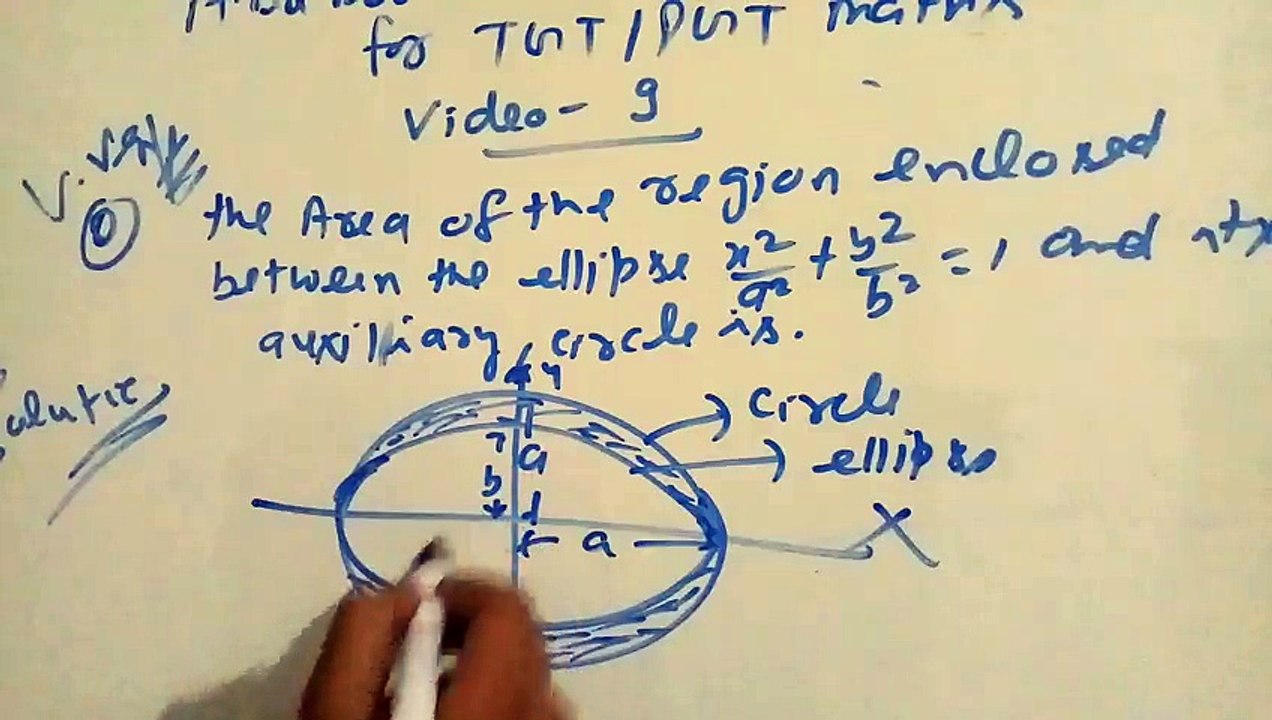 for TGT/PGT
Video- 9
V. V
① the Area of the region enclosed
between the ellipse x²/a² + y²/b² = 1 and
auxilliary circle is.
y
circle
ellipse
a
b
a
X